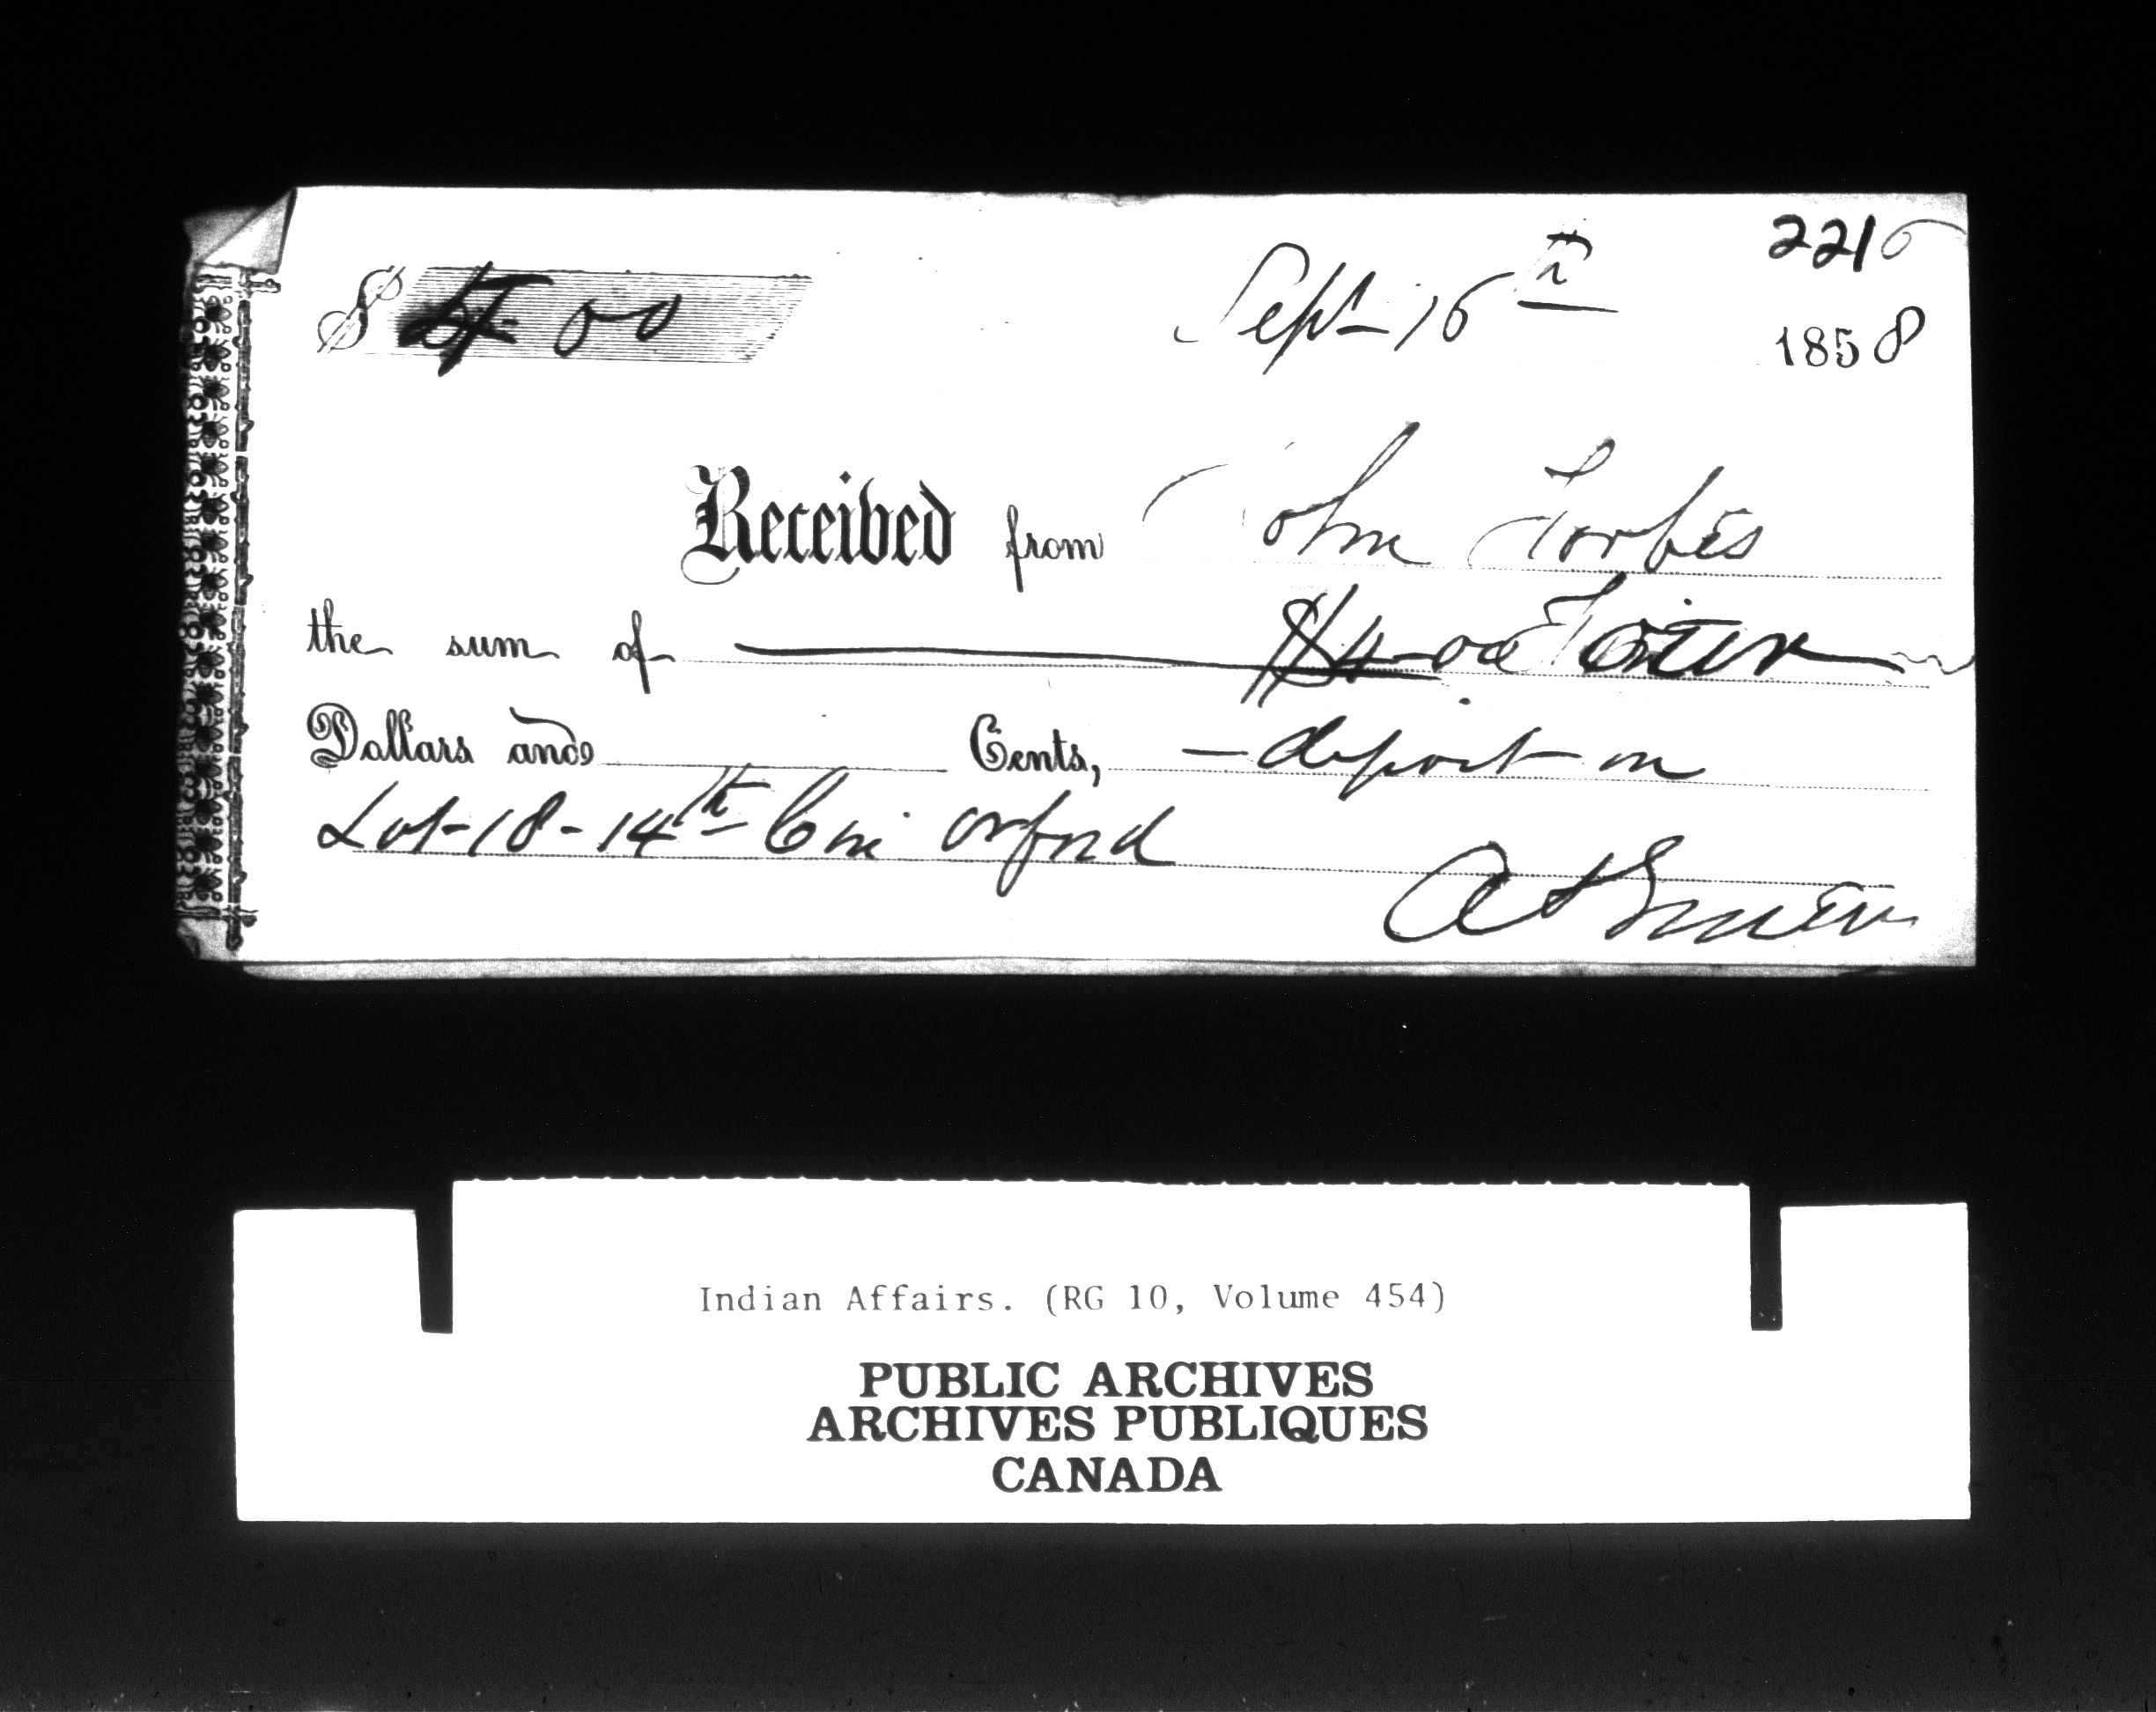 2216
$ 4 00 Sept 16th 1858
Received from John Forbes
the sum of $4-00
Dollars and Cents, - deposit on
Lot-18-14th Con Orford
Indian Affairs. (RG 10, Volume 454)
PUBLIC ARCHIVES
ARCHIVES PUBLIQUES
CANADA